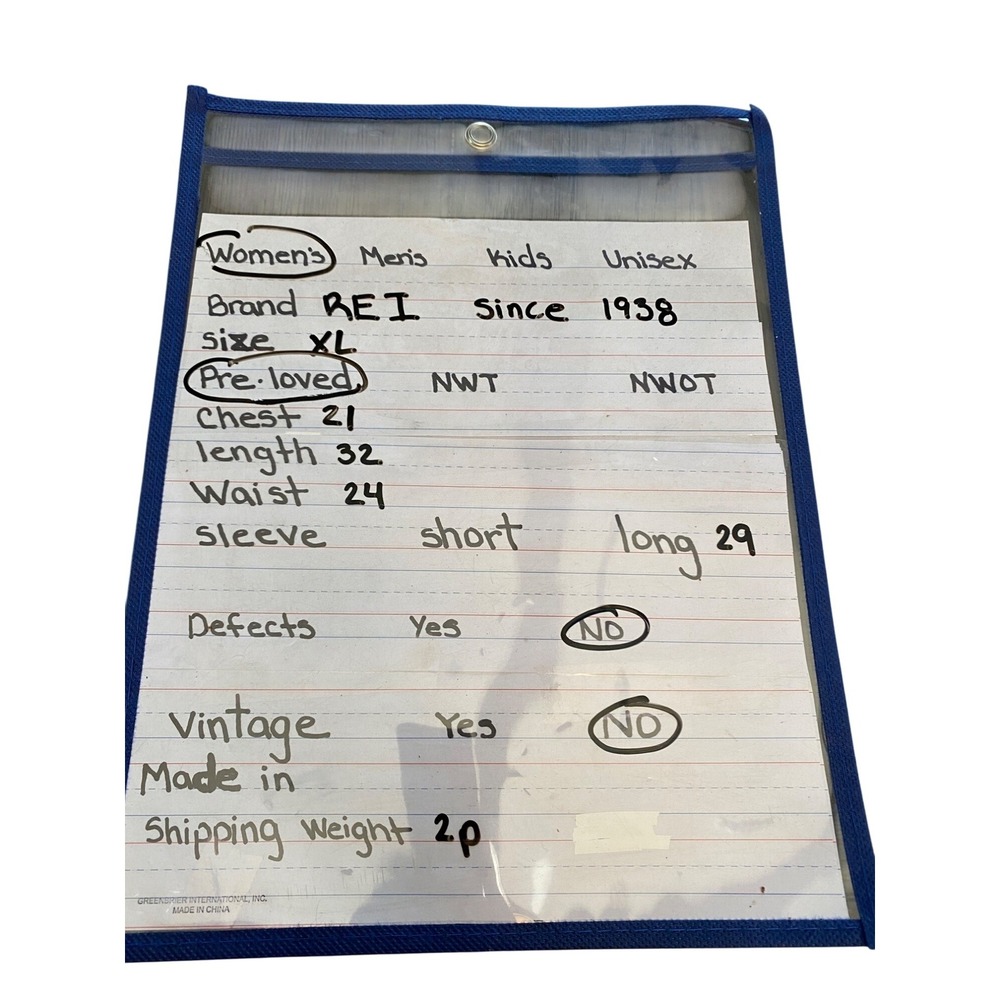 Women's Men's Kids Unisex
Brand REI Since 1938
size XL
Pre-loved NWT NWOT
Chest 21
length 32
Waist 24
sleeve short long 29
Defects Yes NO
Vintage Yes NO
Made in
Shipping Weight 2p
GREENBRIER INTERNATIONAL, INC.
MADE IN CHINA